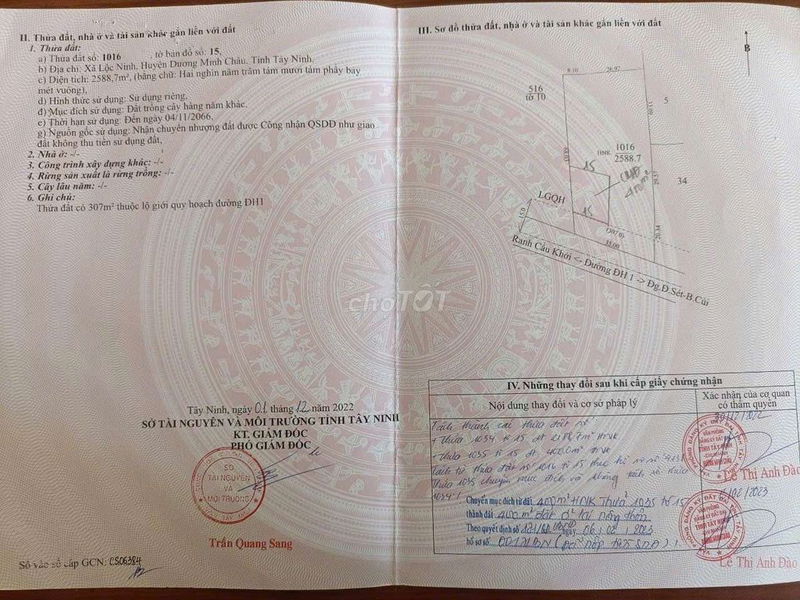 II. Thửa đất, nhà ở và tài sản khác gắn liền với đất
1. Thửa đất:
a) Thửa đất số: 1016 , tờ bản đồ số: 15,
b) Địa chỉ: Xã Lộc Ninh, Huyện Dương Minh Châu, Tỉnh Tây Ninh.
c) Diện tích: 2588,7m², (bằng chữ: Hai nghìn năm trăm tám mươi tám phẩy bảy
mét vuông),
d) Hình thức sử dụng: Sử dụng riêng,
đ) Mục đích sử dụng: Đất trồng cây hàng năm khác,
e) Thời hạn sử dụng: Đến ngày 04/11/2066.
g) Nguồn gốc sử dụng: Nhận chuyển nhượng đất được Công nhận QSDĐ như giao
đất không thu tiền sử dụng đất,
2. Nhà ở: -/-
3. Công trình xây dựng khác: -/-
4. Rừng sản xuất là rừng trồng: -/-
5. Cây lâu năm: -/-
6. Ghi chú:
Thửa đất có 307m² thuộc lộ giới quy hoạch đường ĐH1
Tây Ninh, ngày 01 tháng 12 năm 2022
SỞ TÀI NGUYÊN VÀ MÔI TRƯỜNG TỈNH TÂY NINH
KT. GIÁM ĐỐC
PHÓ GIÁM ĐỐC
SỞ
TÀI NGUYÊN
VÀ
MÔI TRƯỜNG
Trần Quang Sang
Số vào sổ cấp GCN: CS06384
III. Sơ đồ thửa đất, nhà ở và tài sản khác gắn liền với đất
B
8.10 26.97
516
tờ 10
5
1016
HNK 2588.7
34
15
15
LGQH
(307.0)
Ranh Cầu Khởi <- Đường ĐH 1 -> Đg.Đ.Sét-B.Củi
choTỐT
IV. Những thay đổi sau khi cấp giấy chứng nhận
Nội dung thay đổi và cơ sở pháp lý
Xác nhận của cơ quan
có thẩm quyền
+ Thửa 1034 tờ 15
+ Thửa 1035 tờ 15
Lê Thị Anh Đào
Chuyển mục đích từ 400m² HNK Thửa 1035 tờ 15
thành 400m² đất ở tại nông thôn
Theo quyết định số ngày 06/02/2023
hồ sơ số:
Lê Thị Anh Đào